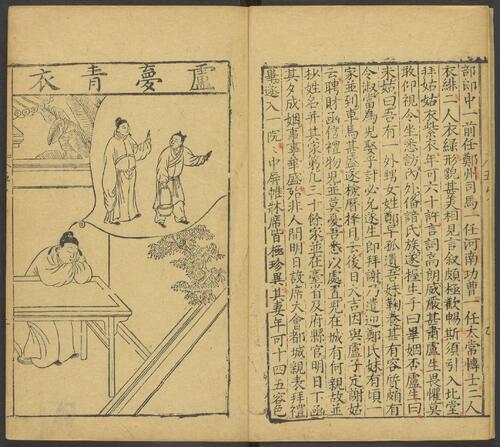 盧夢青衣
部郎中一前任鄭州司馬一任河南功曹一任太常博士二人
衣緋二人衣綠形貌甚美相見言叙頗極歡暢斯須引入北堂
拜姑姑衣紫衣年可六十許言詞高朗威嚴甚肅盧生畏懼莫
敢仰視令坐悉訪內外備諳氏族遂握生手曰畢姻否盧生曰
未姑曰吾有一外甥女姓鄭早孤遺吾妹鞠養甚有容質頗有
令淑當為兒娶子計必允遂生即拜謝乃遣迎鄭氏妹有頃一
家並到車馬甚盛遂檢曆擇日云後日大吉因與盧子定謝姑
云聘財函信禮物兒並莫憂吾悉以處置兒在城有何親故並
抄姓名并其家第九三十餘家並在臺省及府縣官明日下函
其夕成姻事事華盛殆非人間明日設席大會都城親表拜禮
畢遂入一院中屏帷牀席皆極珍異其妻年可十四五容色